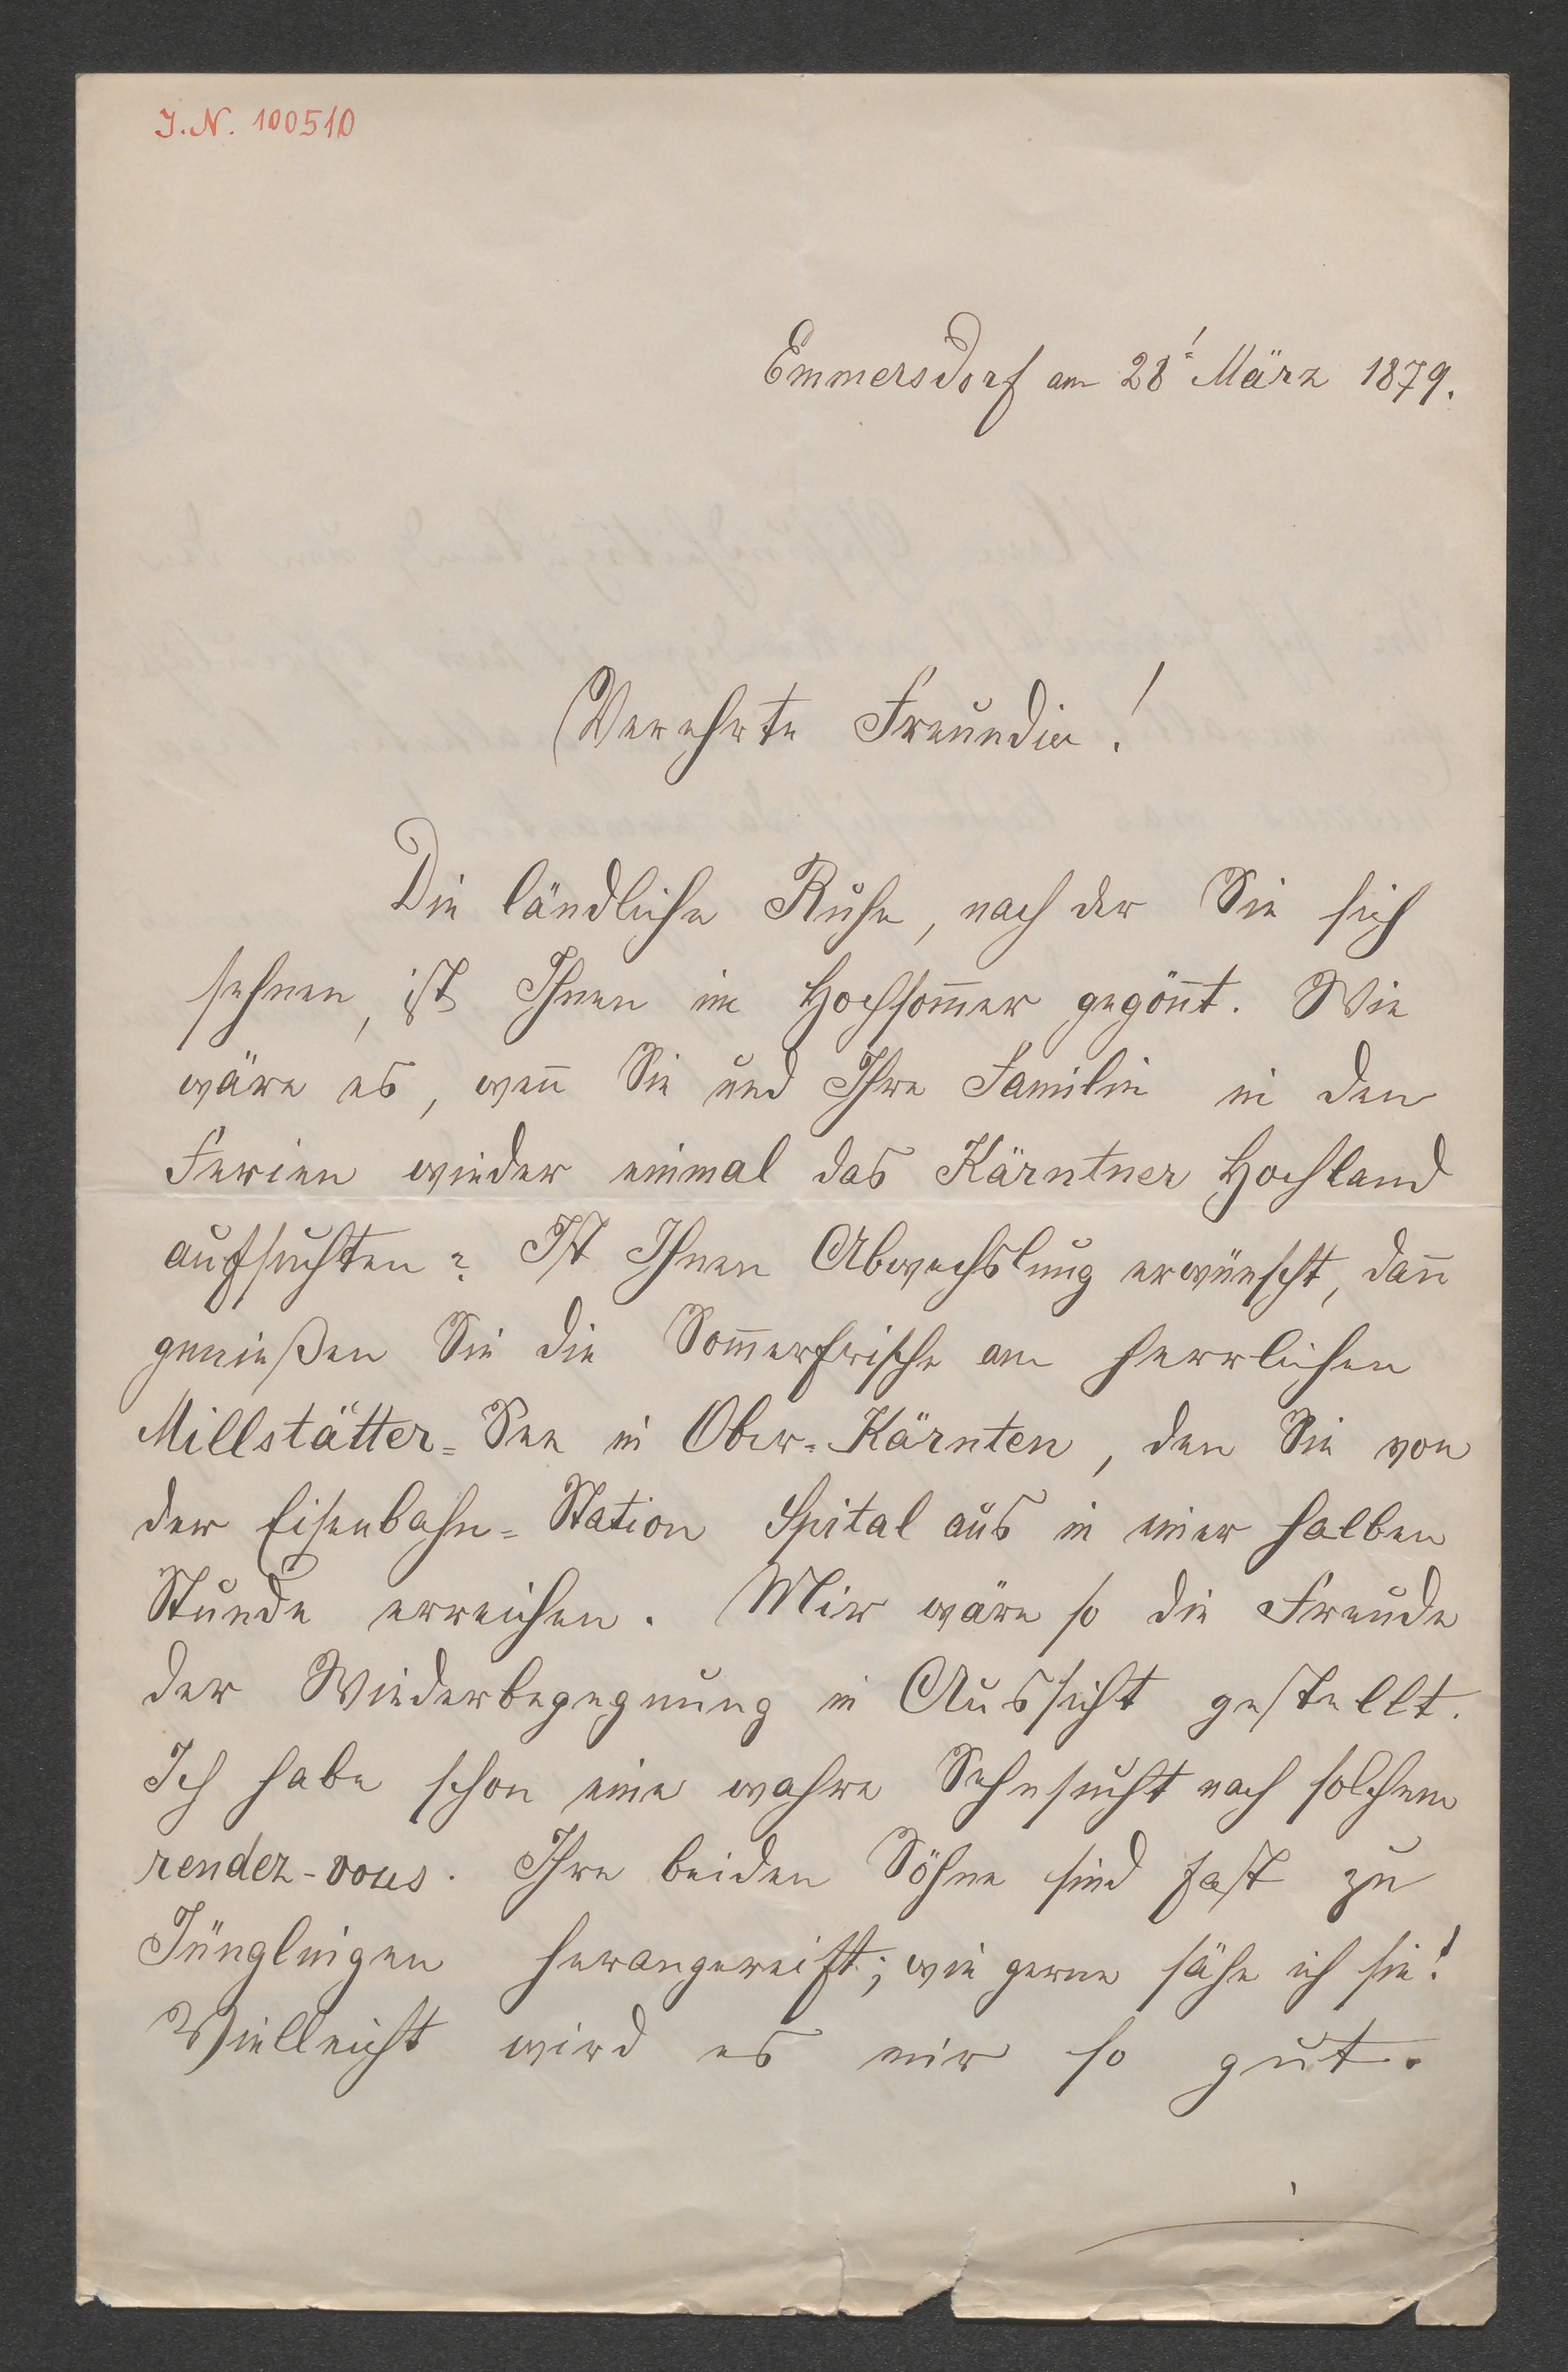 J.N. 100510
Emmersdorf am 28. März 1879.
Verehrte Freundin!
Die ländliche Ruhe, nach der Sie sich
sehnen, ist Ihnen im Hochsom̅er gegön̅t. Wie
wäre es, wen̅ Sie und Ihre Familie in den
Ferien wieder einmal das Kärntner Hochland
aufsuchten? Ist Ihnen Abwechslung erwünscht, dan̅
genießen Sie die Som̅erfrische am herrlichen
Millstätter=See in Ober-Kärnten, den Sie von
der Eisenbahn=Station Spital aus in einer halben
Stunde erreichen. Mir wäre so die Freude
der Wiederbegegnung in Aussicht gestellt.
Ich habe schon eine wahre Sehnsucht nach solchem
rendez-vous. Ihre beiden Söhne sind fast zu
Jünglingen herangereift; wie gerne sähe ich sie!
Vielleicht wird es mir so gut.